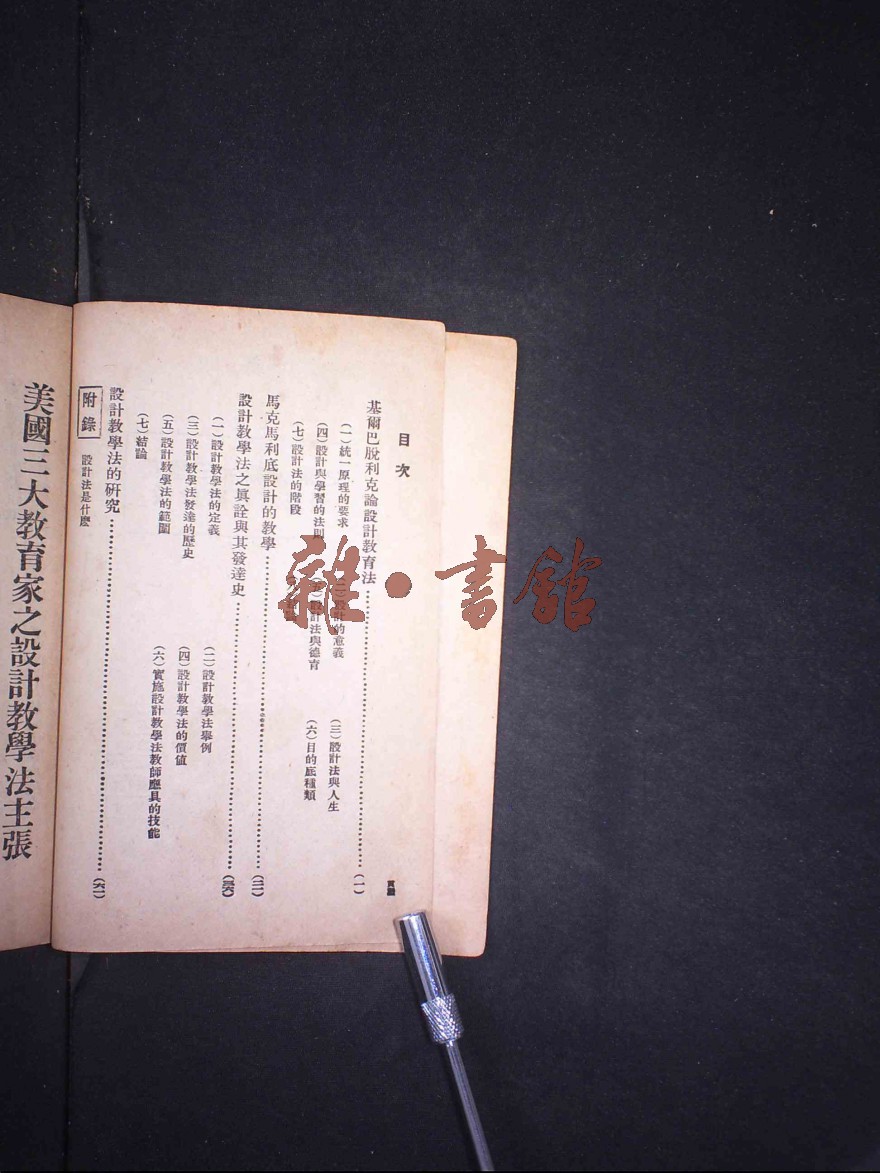 目次
頁數
基爾巴脫利克論設計教育法……(一)
(一)統一原理的要求 (二)設計的意義 (三)設計法與人生
(四)設計與學習的法則 (五)設計法與德育 (六)目的底種類
(七)設計法的階段
馬克馬利底設計的教學……(二一)
設計教學法之眞詮與其發達史……(三六)
(一)設計教學法的定義 (二)設計教學法舉例
(三)設計教學法發達的歷史 (四)設計教學法的價值
(五)設計教學法的範圍 (六)實施設計教學法教師應具的技能
(七)結論
設計教學法的研究……(六一)
附錄 設計法是什麽
美國三大教育家之設計教學法主張
雜·書館